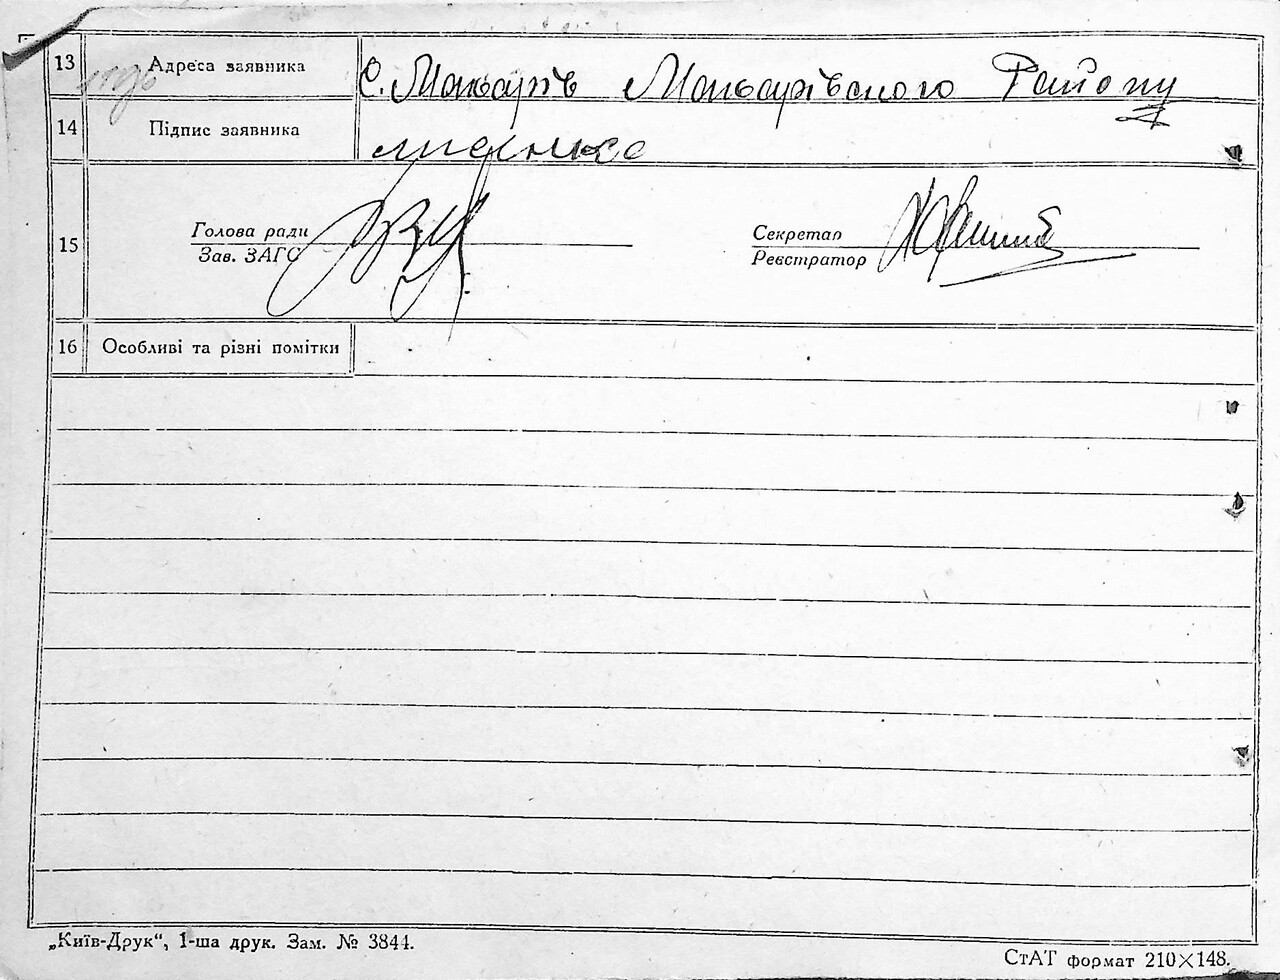 13 Адреса заявника с. Макарів Макарівського Району
14 Підпис заявника
15 Голова ради
Зав. ЗАГС
Секретар
Реєстратор
16 Особливі та різні помітки
„Київ-Друк“, 1-ша друк. Зам. № 3844.
СтАТ формат 210×148.